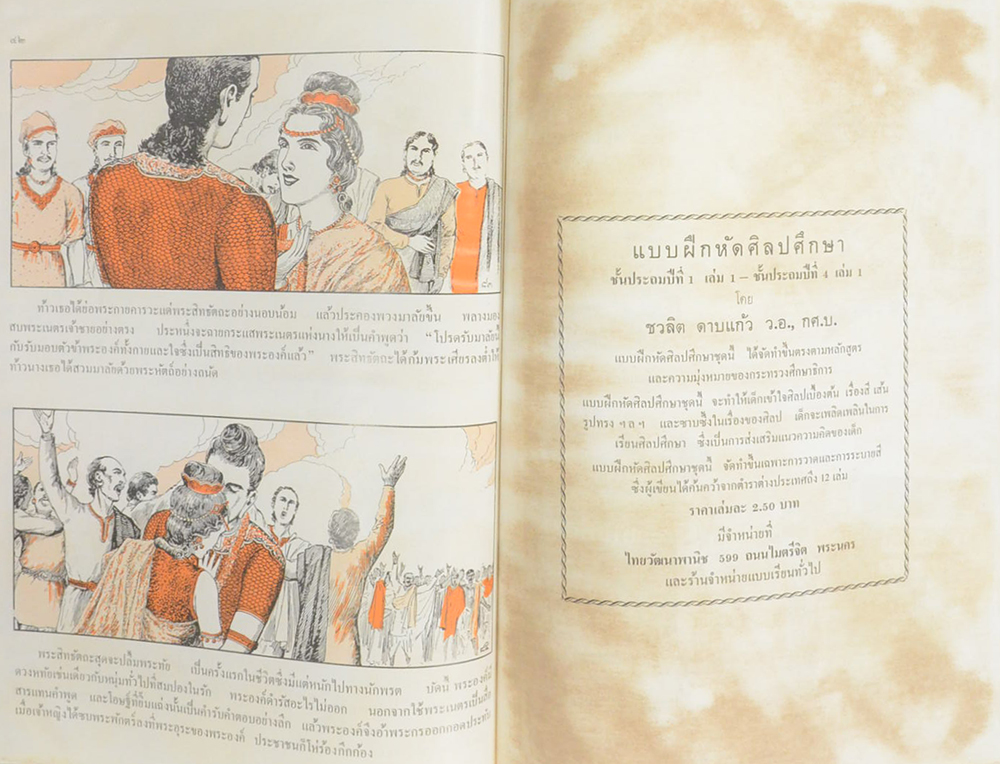 ๘๒
ท้าวเธอได้ย่อพระกายคารวะแด่พระสิทธัตถะอย่างนอบน้อม แล้วประคองพวงมาลัยขึ้น พลางมอง
สบพระเนตรเจ้าชายอย่างตรง ประหนึ่งจะฉายกระแสพระเนตรแห่งนางให้เป็นคำพูดว่า “โปรดรับมาลัยนี้
กับรับมอบตัวข้าพระองค์ทั้งกายและใจซึ่งเป็นสิทธิของพระองค์แล้ว” พระสิทธัตถะได้ก้มพระเศียรลงต่ำให้
ท้าวนางเธอได้สวมมาลัยด้วยพระหัตถ์อย่างถนัด
พระสิทธัตถะสุดจะปลื้มพระทัย เป็นครั้งแรกในชีวิตซึ่งมีแต่หนักไปทางนักพรต บัดนี้ พระองค์มี
ดวงหทัยเช่นเดียวกับหนุ่มทั่วไปที่สมปองในรัก พระองค์ดำรัสอะไรไม่ออก นอกจากใช้พระเนตรเป็นสื่อ
สารแทนคำพูด และโอษฐ์ที่ยิ้มแฉ่งนั้นเป็นคำรับคำตอบอย่างลึก แล้วพระองค์จึงอ้าพระกรออกกอดประทับ
เมื่อเจ้าหญิงได้ซบพระพักตร์ลงที่พระอุระของพระองค์ ประชาชนก็โห่ร้องกึกก้อง
แบบฝึกหัดศิลปศึกษา
ชั้นประถมปีที่ 1 เล่ม 1 – ชั้นประถมปีที่ 4 เล่ม 1
โดย
ชวลิต ดาบแก้ว ว.อ., กศ.บ.
แบบฝึกหัดศิลปศึกษาชุดนี้ ได้จัดทำขึ้นตรงตามหลักสูตร
และความมุ่งหมายของกระทรวงศึกษาธิการ
แบบฝึกหัดศิลปศึกษาชุดนี้ จะทำให้เด็กเข้าใจศิลปเบื้องต้น เรื่องสี เส้น
รูปทรง ฯลฯ และซาบซึ้งในเรื่องของศิลป เด็กจะเพลิดเพลินในการ
เรียนศิลปศึกษา ซึ่งเป็นการส่งเสริมแนวความคิดของเด็ก
แบบฝึกหัดศิลปศึกษาชุดนี้ จัดทำขึ้นเฉพาะการวาดและการระบายสี
ซึ่งผู้เขียนได้ค้นคว้าจากตำราต่างประเทศถึง 12 เล่ม
ราคาเล่มละ 2.50 บาท
มีจำหน่ายที่
ไทยวัฒนาพานิช 599 ถนนไมตรีจิต พระนคร
และร้านจำหน่ายแบบเรียนทั่วไป